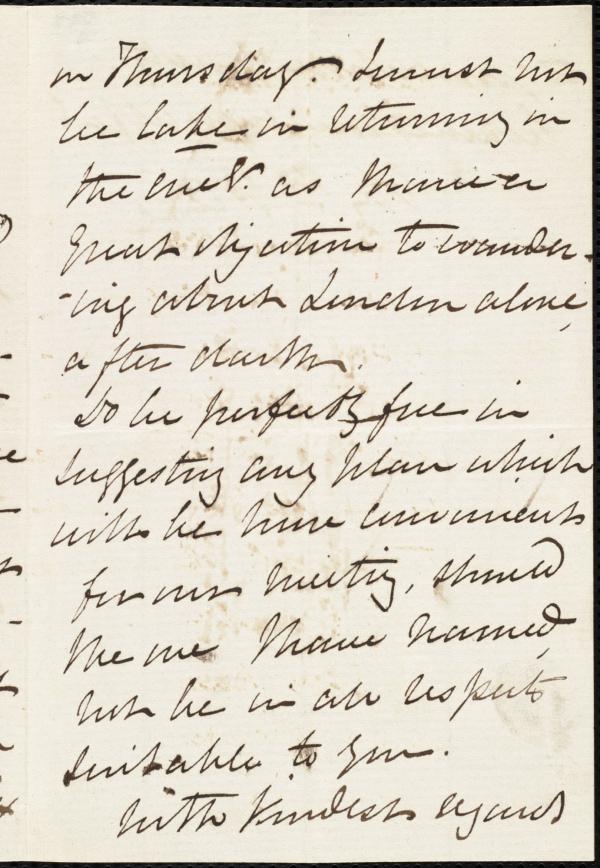 on Thursday. I must not
be late in returning in
the eve^g. as I have a
great objection to wander-
-ing about London alone,
after dark.
Do be perfectly free in
suggesting any plan which
will be more convenient
for our meeting, should
the one I have named,
not be in all respects
suitable to you.
With kindest regards